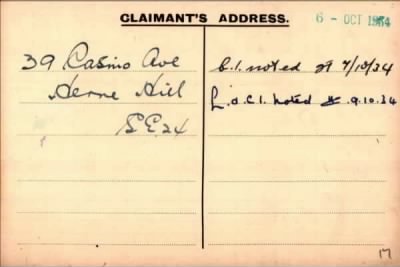 CLAIMANT'S ADDRESS.
6 - OCT 1934
39 Casino Ave
Herne Hill
S.E.24
C.I. noted 7/10/34
L.O.C.I. noted 9.10.34
17